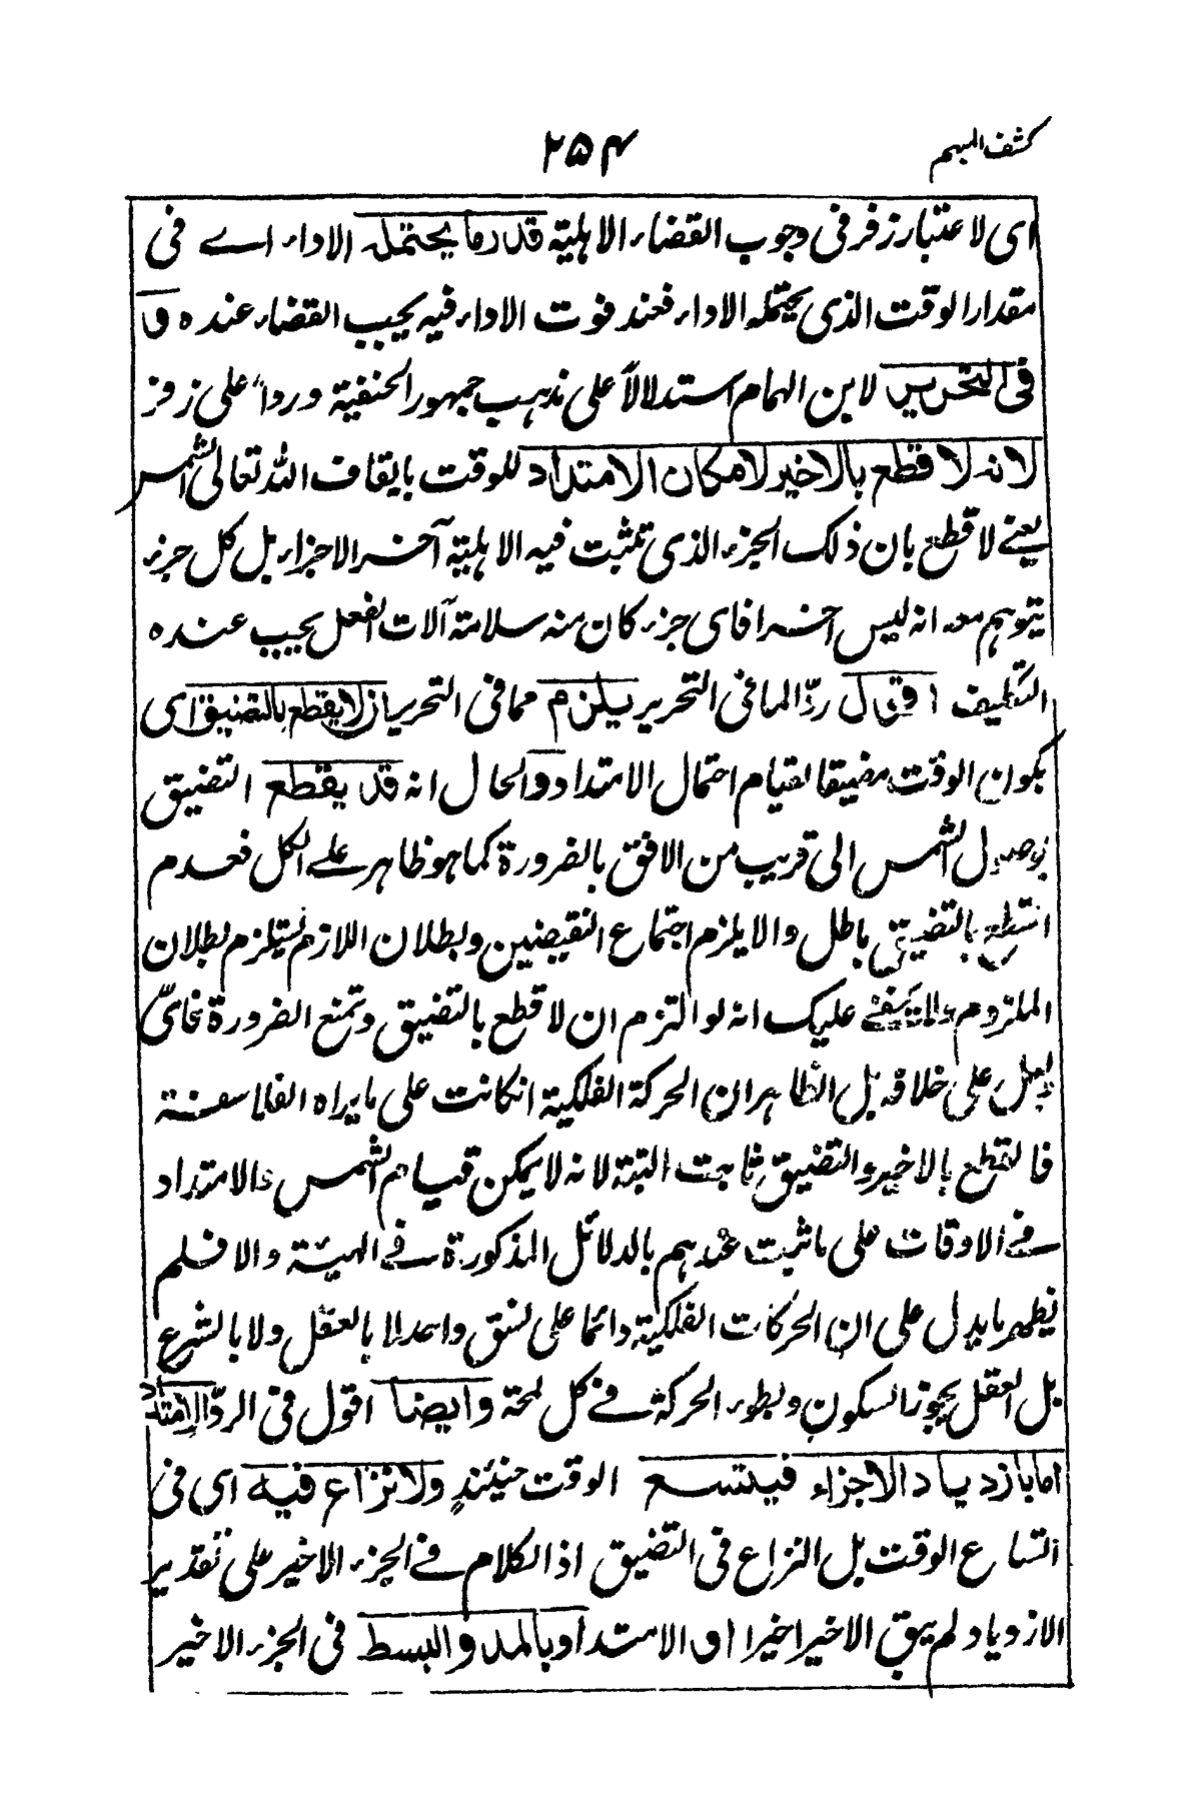 كشف المبهم
٢٥٤
اى لاعتبار زفر فى وجوب القضاء الاهلية قدر ما يحتمله الاداء اے فى
مقدار الوقت الذى يحتمله الاداء فعند فوت الاداء فيه يجب القضاء عنده و
فى التحرير لابن الهمام استدلالاً على مذهب جمهور الحنفية ورداً على زفر
لانه لا قطع بالاخير لامكان الامتداد للوقت بايقاف الله تعالى الشمس
يعنے لا قطع بان ذلك الجزء الذى تثبت فيه الاهلية آخر الاجزاء بل كل جزء
يتوهم معه انه ليس اخرا فاى جزء كان منه سلامة آلات الفعل يجب عنده
التكليف اقول ردّا لما فى التحرير يلزم مما فى التحرير ان لا يقطع بالتضيق اى
بكون الوقت مضيقا لقيام احتمال الامتداد والحال انه قد يقطع التضيق
بوصول الشمس الى قريب من الافق بالضرورة كما هو ظاهر علے الكل فعدم
القطع بالتضيق باطل والا يلزم اجتماع النقيضين وبطلان اللازم يستلزم بطلان
الملزوم ولا يخفے عليك انه لو التزم ان لا قطع بالتضيق وتمنع الضرورة فاىّ
دليل على خلافه بل الظاهر ان الحركة الفلكية انكانت على ما يراه الفلاسفة
فالقطع بالاخير والتضيق ثابت البتة لانه لا يمكن قيام الشمس والامتداد
فے الاوقات على ما ثبت عندهم بالدلائل المذكورة فے الهيئة والا فلم
يظهر ما يدل على ان الحركات الفلكية دائما على نسق واحد لا بالعقل ولا بالشرع
بل العقل يجوز السكون وبطوء الحركة فے كل لمحة وايضا اقول فى الردّ الامتداد
اما بازدياد الاجزاء فيتسع الوقت حينئذٍ ولا نزاع فيه اى فى
اتساع الوقت بل النزاع فى التضيق اذ الكلام فے الجزء الاخير على تقدير
الازدياد لم يبق الاخير اخيرا او الامتداد بالمد والبسط فى الجزء الاخير